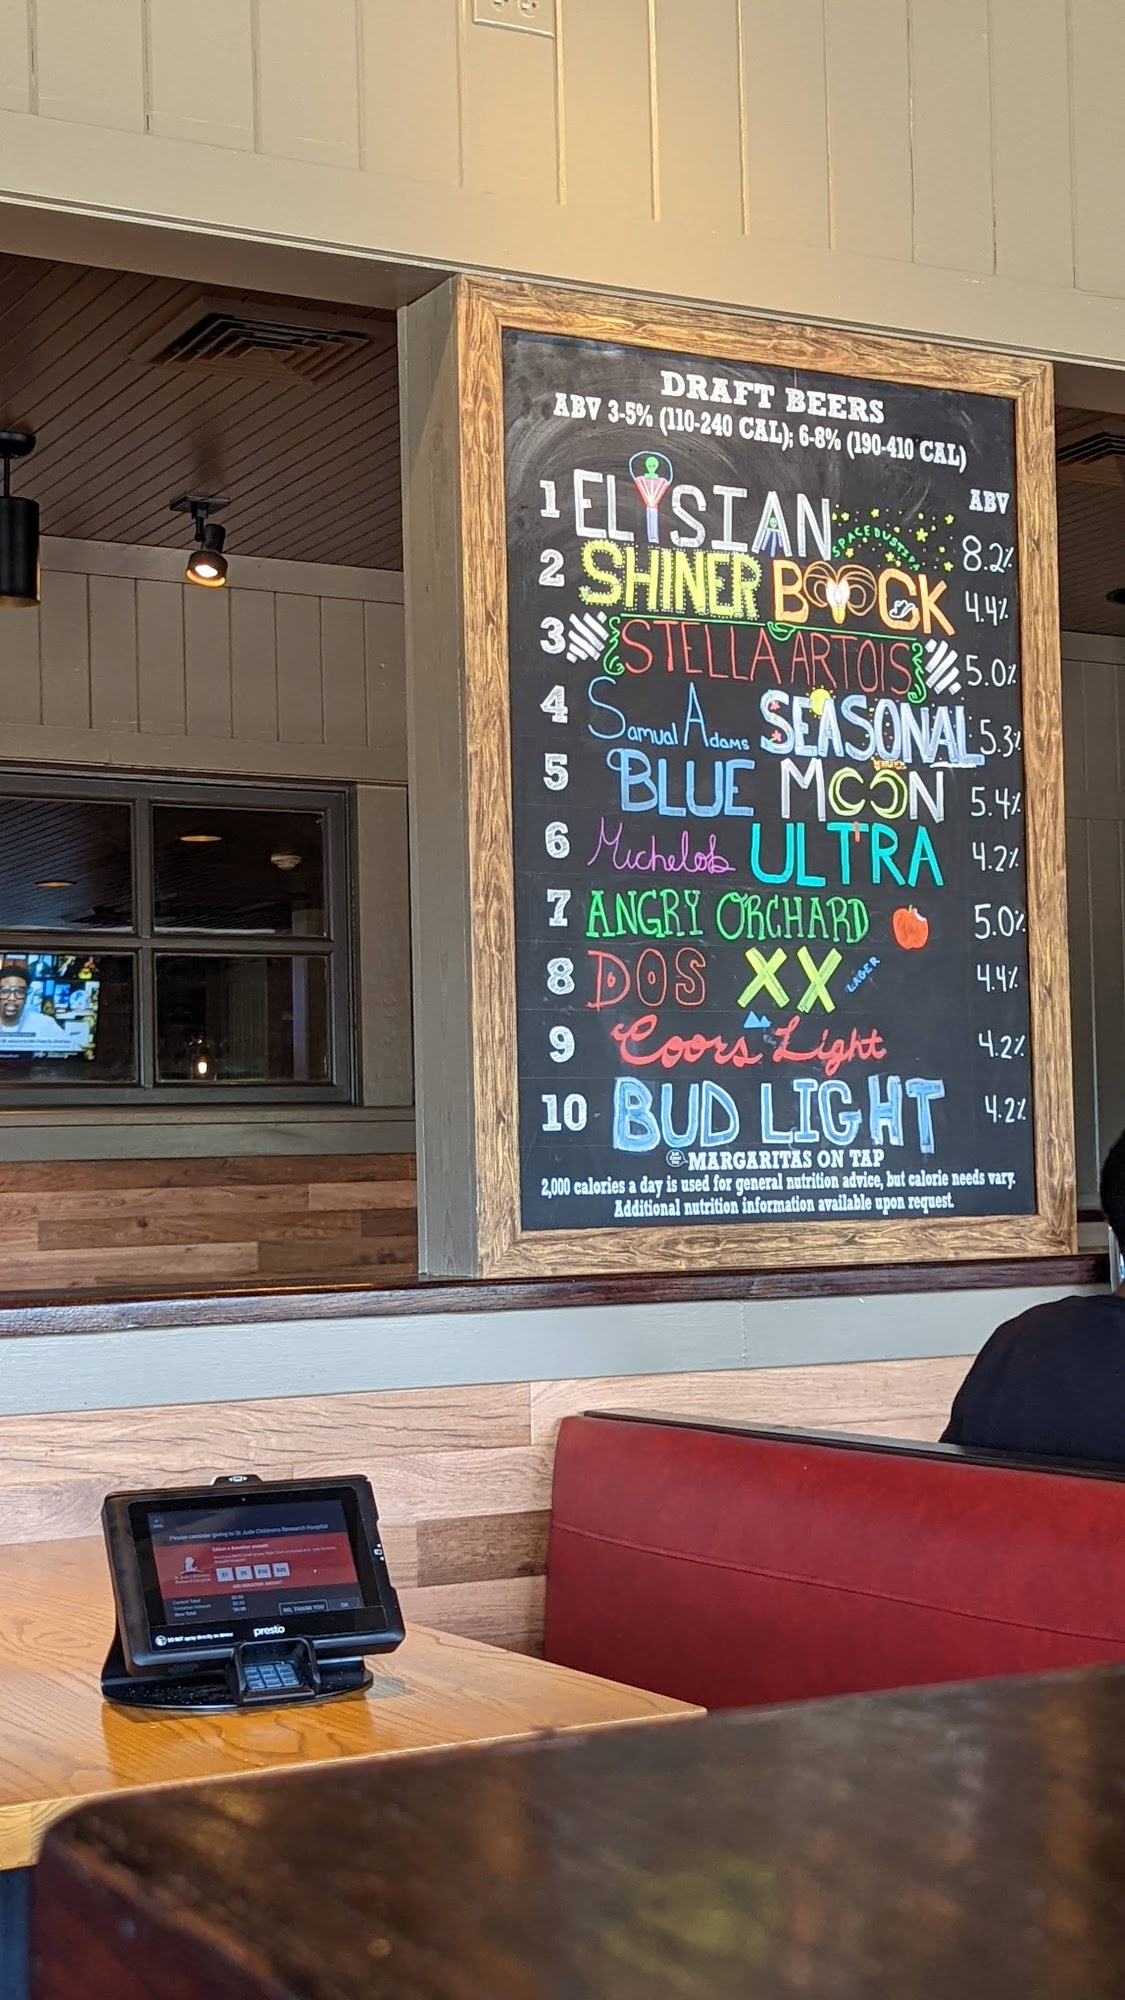 DRAFT BEERS
ABV 3-5% (110-240 CAL); 6-8% (190-410 CAL)
ABV
1 ELYSIAN SPACE DUST IPA 8.2%
2 SHINER BOCK 4.4%
3 STELLA ARTOIS 5.0%
4 Samual Adams SEASONAL 5.3%
5 BLUE MOON 5.4%
6 Michelob ULTRA 4.2%
7 ANGRY ORCHARD 5.0%
8 DOS XX LAGER 4.4%
9 Coors Light 4.2%
10 BUD LIGHT 4.2%
MARGARITAS ON TAP
2,000 calories a day is used for general nutrition advice, but calorie needs vary.
Additional nutrition information available upon request.
Please consider giving to St. Jude Children's Research Hospital
Select a donation amount
$1 $5 $10 $25
Current Total
Donation Amount
New Total
NO, THANK YOU OK
DO NOT spray directly on device
presto